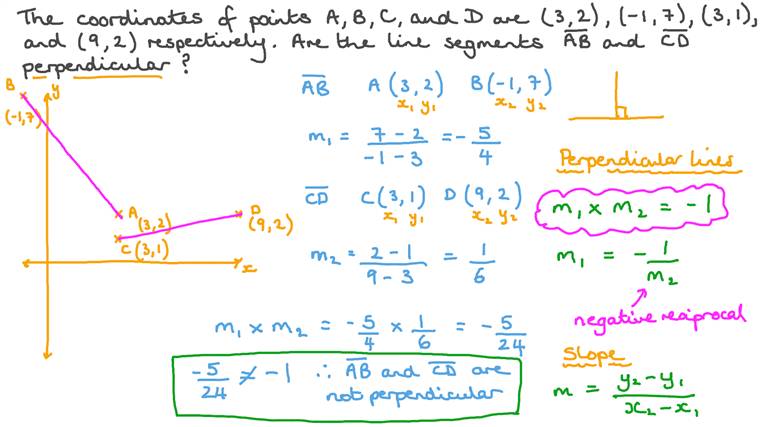 The coordinates of points A, B, C, and D are (3,2), (-1,7), (3,1),
and (9,2) respectively. Are the line segments A̅B̅ and C̅D̅
perpendicular?
B
(-1,7)
y
A
(3,2)
C (3,1)
D
(9,2)
x
A̅B̅ A (3,2) B (-1,7)
x₁ y₁ x₂ y₂
m₁ = (7 - 2)/(-1 - 3) = -5/4
C̅D̅ C (3,1) D (9,2)
x₁ y₁ x₂ y₂
m₂ = (2 - 1)/(9 - 3) = 1/6
m₁ × m₂ = -5/4 × 1/6 = -5/24
-5/24 ≠ -1 ∴ A̅B̅ and C̅D̅ are
not perpendicular
Perpendicular lines
m₁ × m₂ = -1
m₁ = -1/m₂
negative reciprocal
Slope
m = (y₂ - y₁)/(x₂ - x₁)